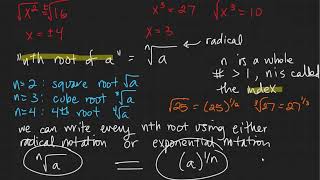 √x² = ±√16
x = ±4
x³ = 27
x = 3
√x³ = 10
"nth root of a" = ⁿ√a
radical
n is a whole
# > 1, n is called
the index
n=2: square root √a
n=3: cube root ³√a
n=4: 4th root ⁴√a
√25 = (25)^1/2
³√27 = 27^1/3
we can write every nth root using either
radical notation or exponential notation
ⁿ√a = (a)^1/n